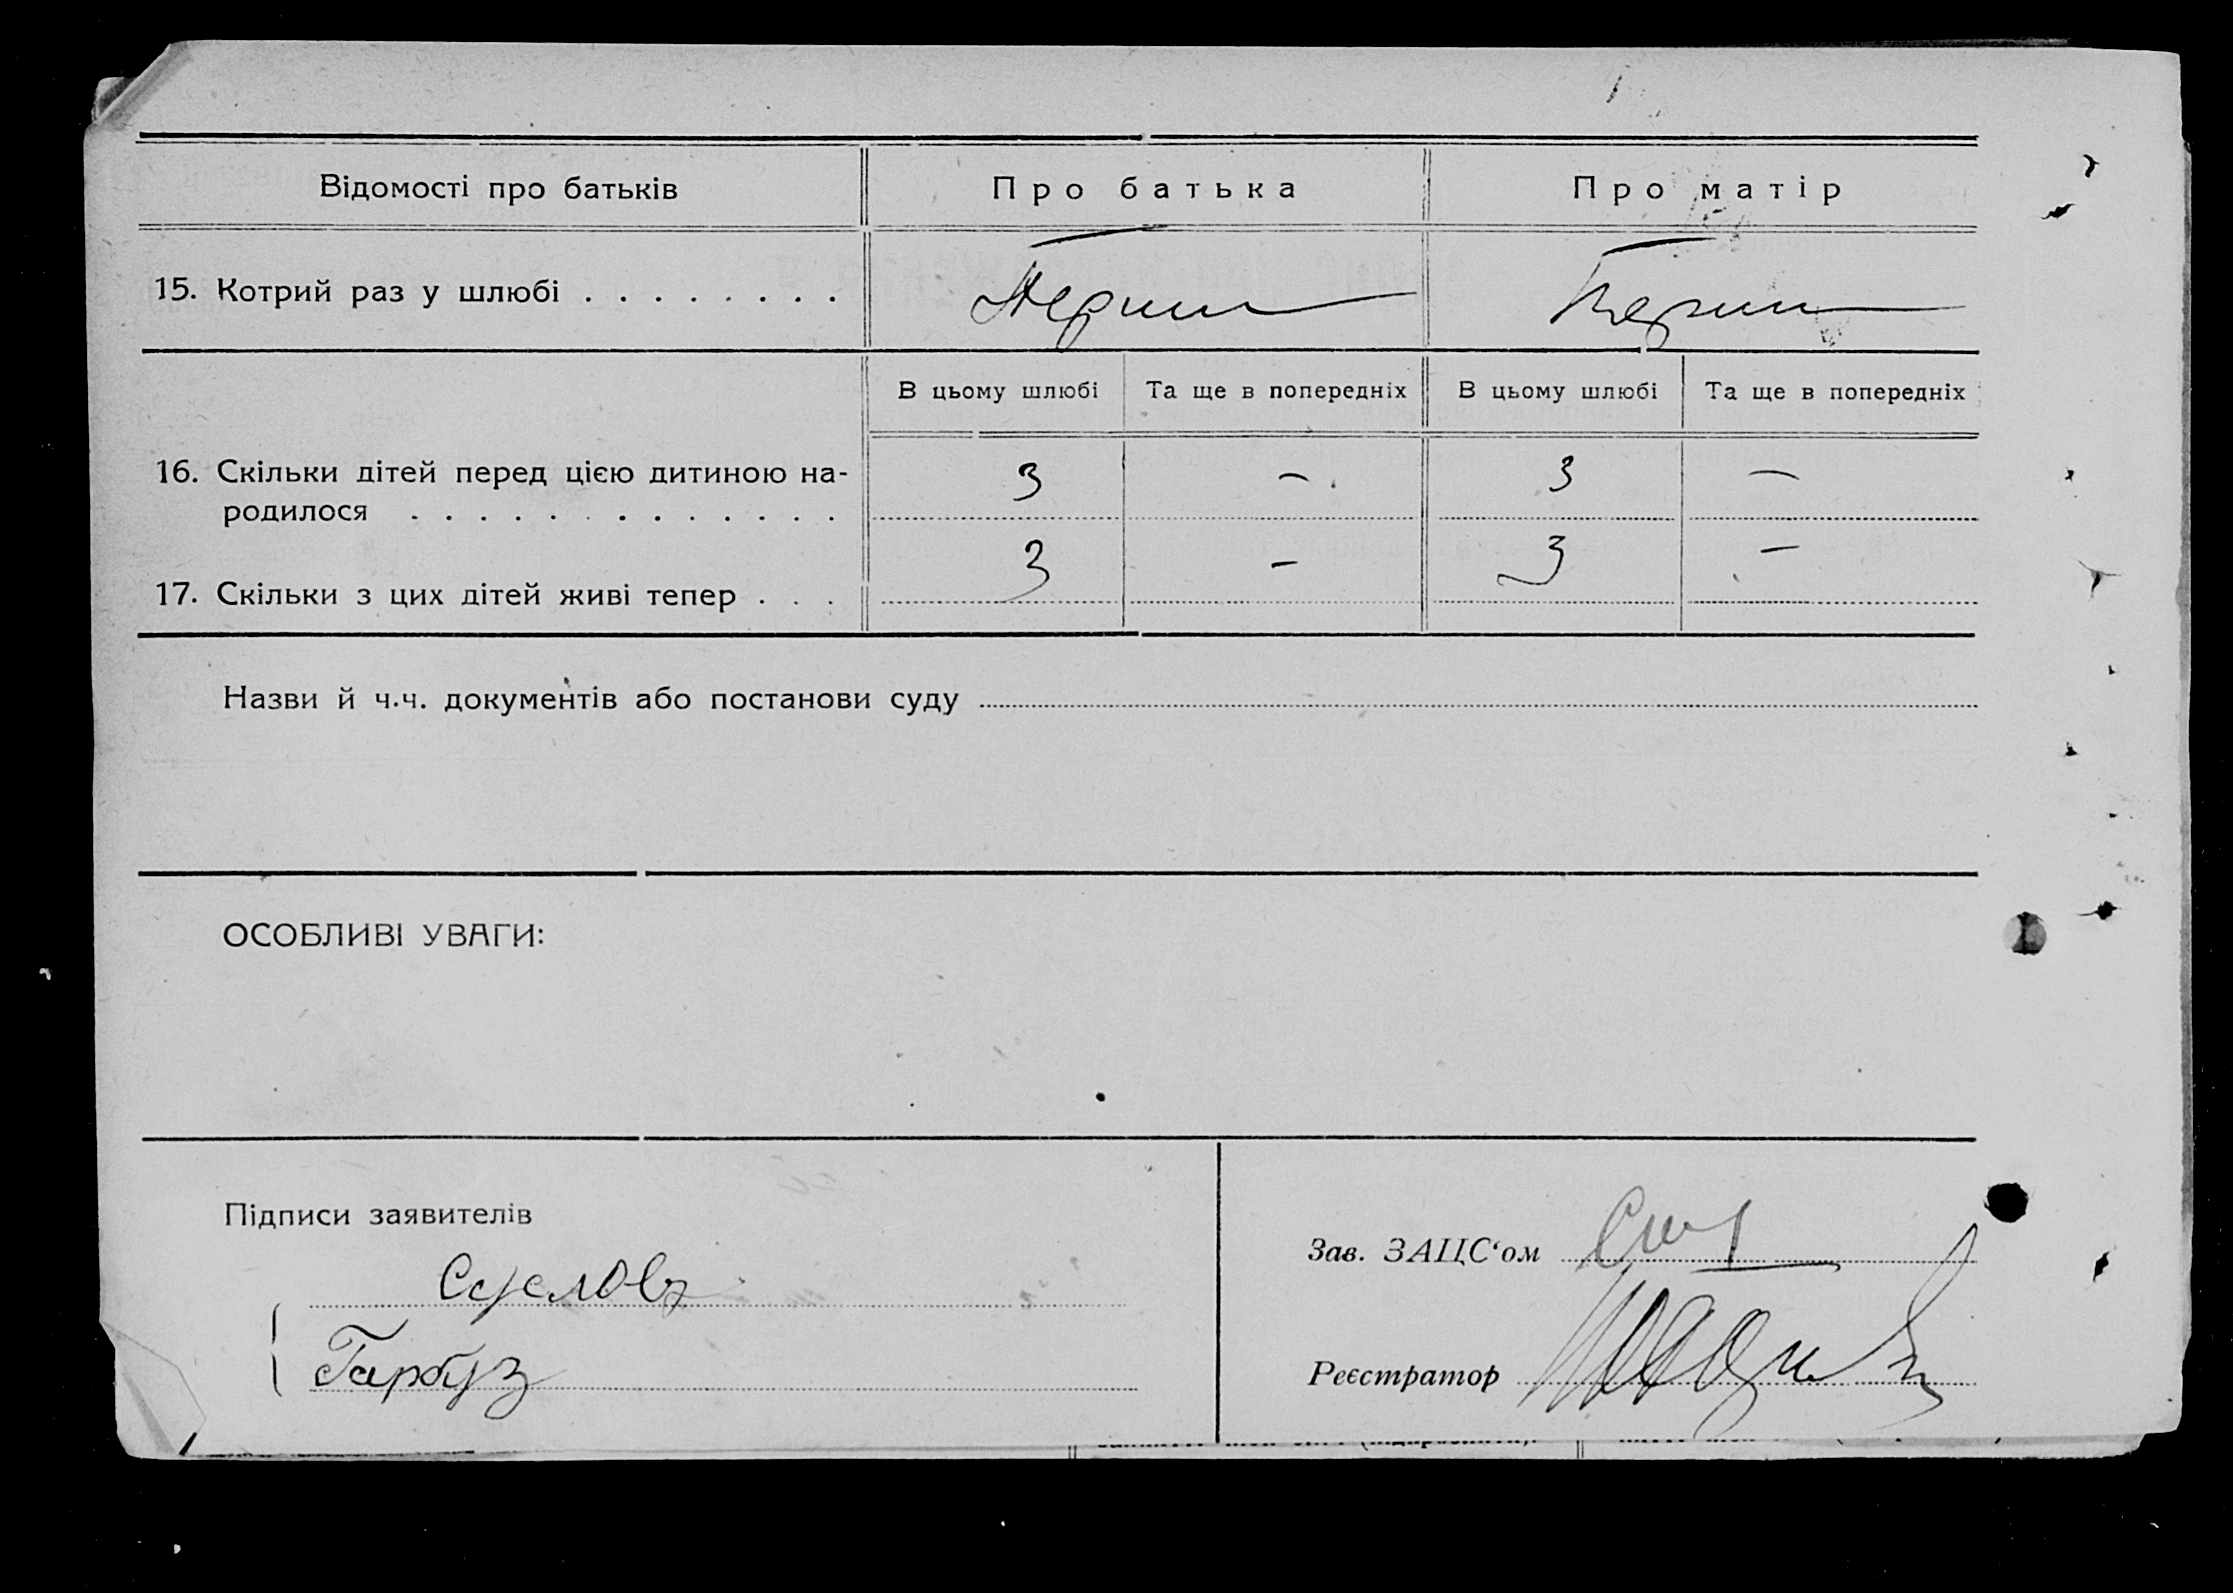 Відомості про батьків Про батька Про матір
15. Котрий раз у шлюбі . . . . . . . . Перший Перший
В цьому шлюбі Та ще в попередніх В цьому шлюбі Та ще в попередніх
16. Скільки дітей перед цією дитиною на- 3 – 3 –
родилося . . . . . . . . . . . . .
17. Скільки з цих дітей живі тепер . . . 3 – 3 –
Назви й ч.ч. документів або постанови суду
ОСОБЛИВІ УВАГИ:
Підписи заявителів
Зав. ЗАЦС‘ом
Гарбуз
Реєстратор